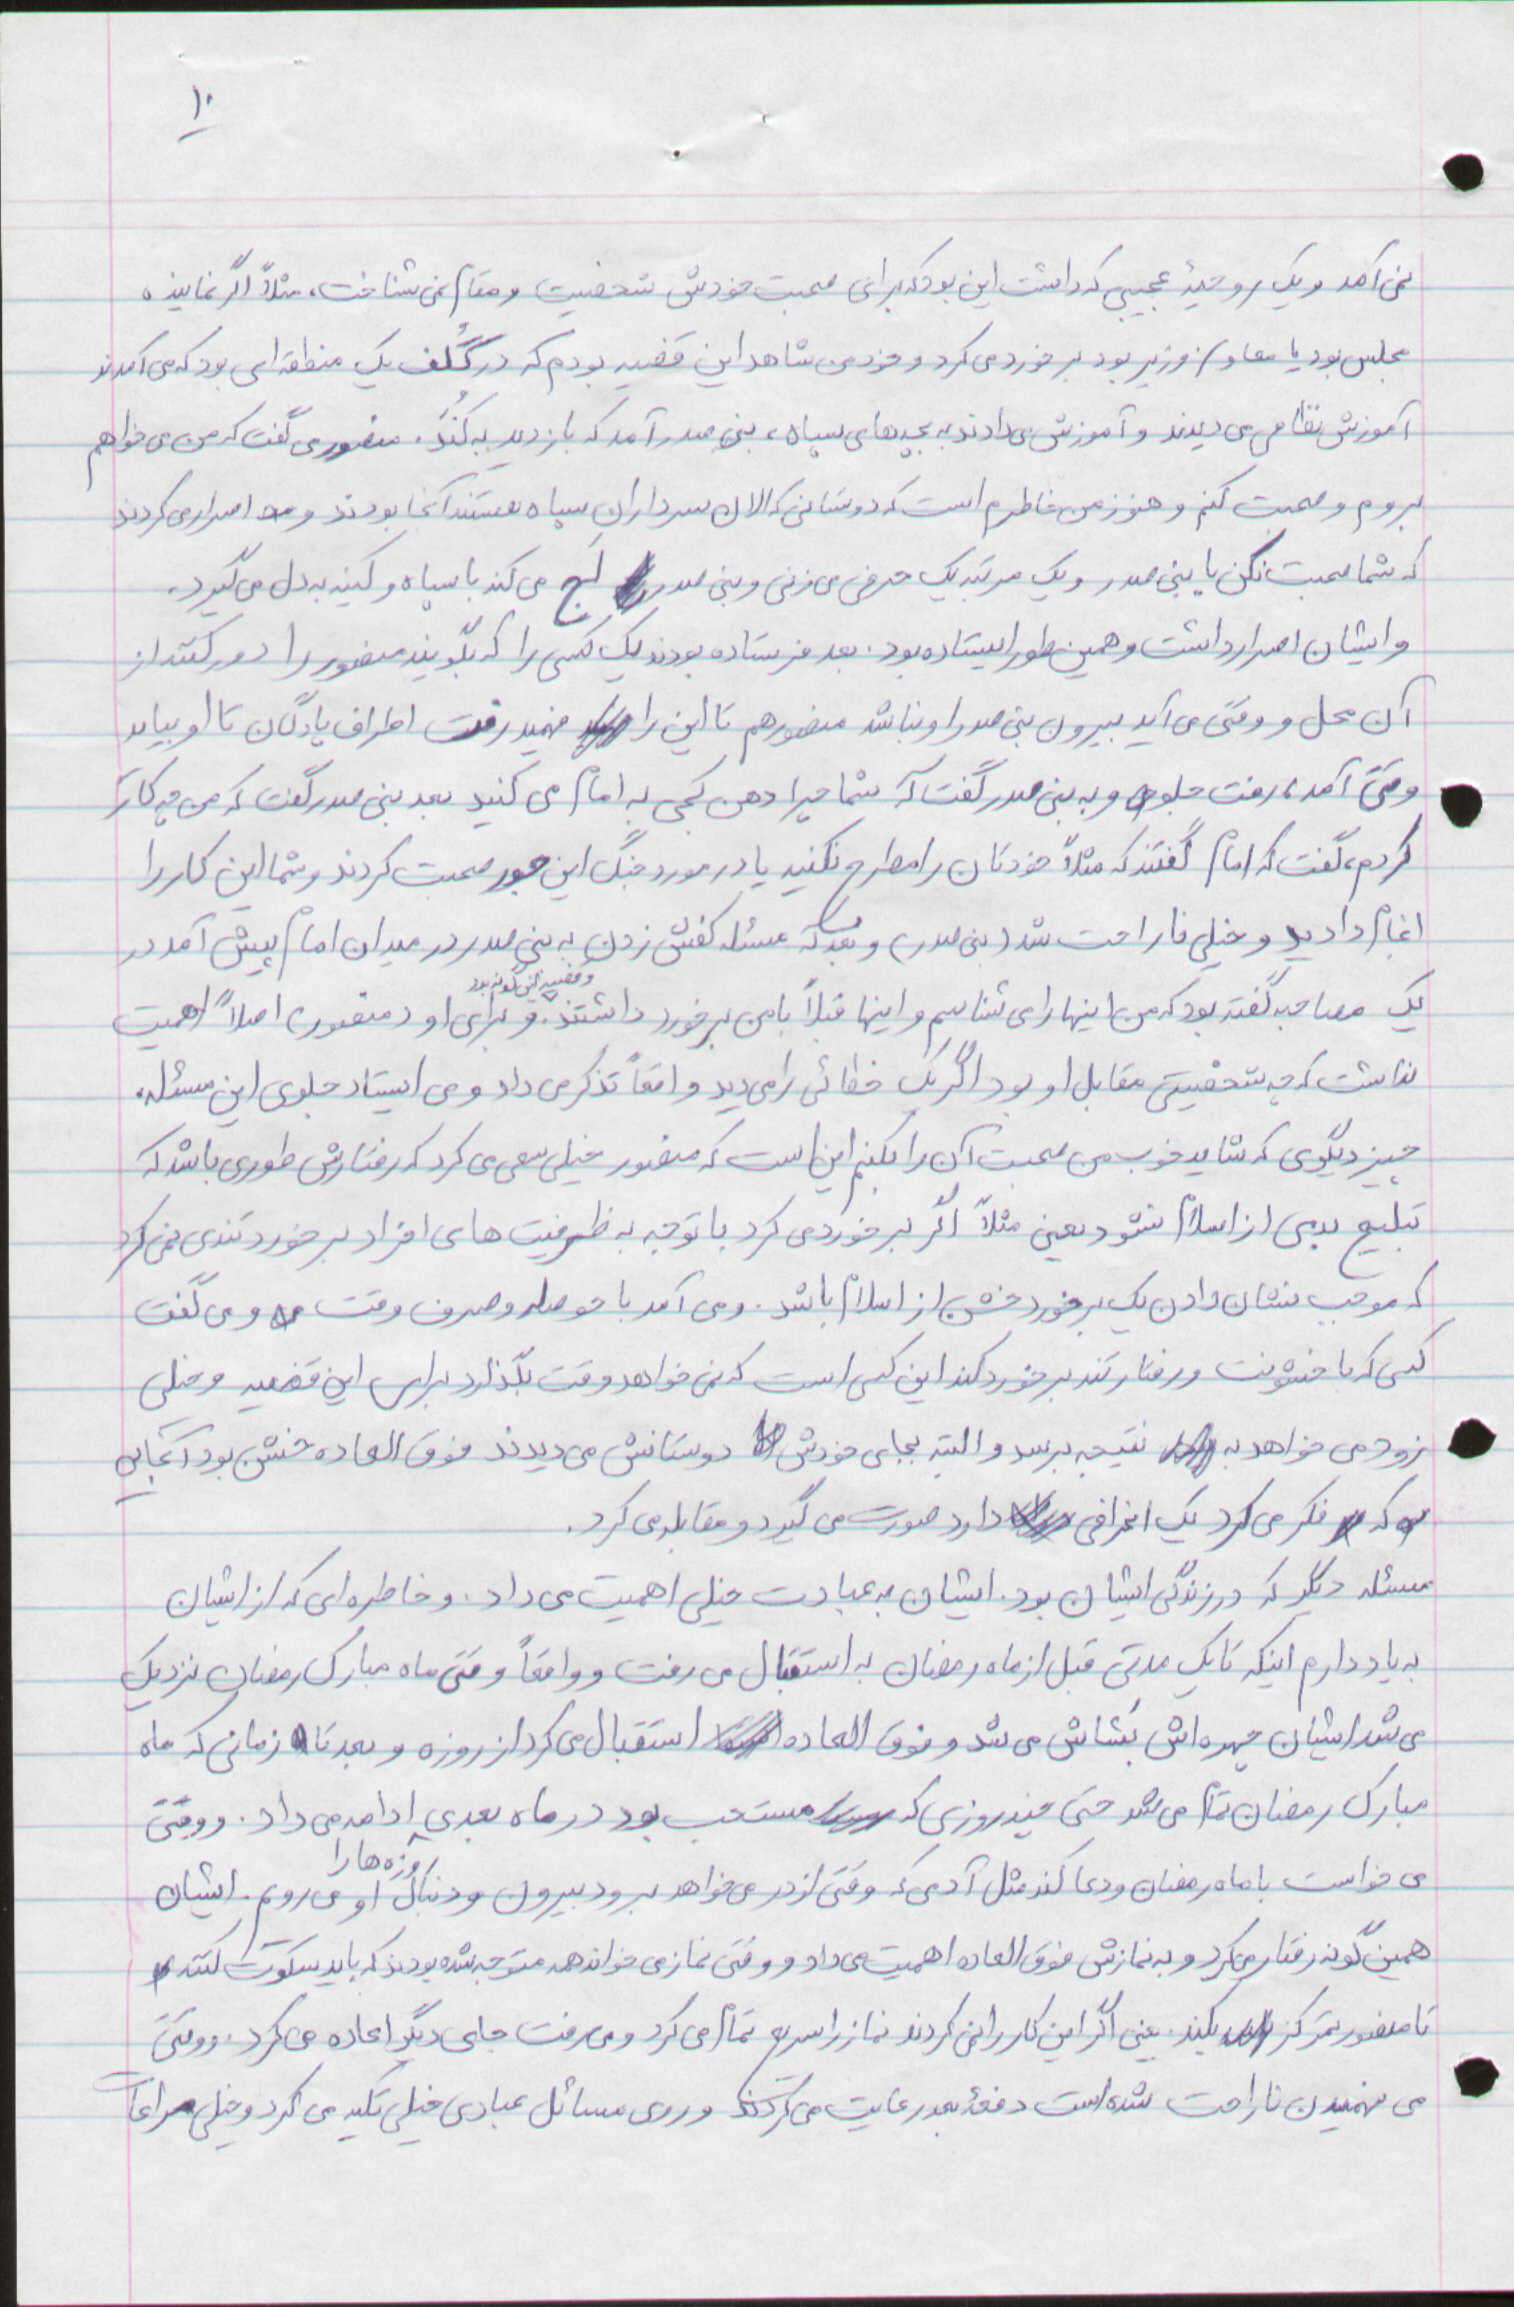 ۱۰
نمی آمد و یک روحیهٔ عجیبی که داشت این بود که برای صحبت خودش شخصیت و مقام نمی شناخت، مثلاً اگر نماینده
مجلس بود یا معاون وزیر بود برخورد می کرد و خود من شاهد این قضیه بودم که در گُلف یک منطقه ای بود که می آمدند
آموزش نظامی می دیدند و آموزش می دادند به بچه های سپاه، بنی صدر آمد که بازدید به کُنَد. منصور می گفت که من می خواهم
بروم و صحبت کنم و هنوز من خاطرم است که دوستانی که الان سرداران سپاه هستند آنجا بودند و اصرار می کردند
که شما صحبت نکن با بنی صدر و یک مرتبه یک حرفی می زنی و بنی صدر لج می کند با سپاه و کینه به دل می گیرد.
و ایشان اصرار داشت و همین طور ایستاده بود. بعد فرستاده بودند یک کسی را که بگویند منصور را دور کنند از
آن محل و وقتی می آید بیرون بنی صدر او نباشد منصور هم تا این را فهمید رفت اطراف پادگان تا او بیاید
وقتی آمد، رفت جلو و به بنی صدر گفت که شما چرا دهن کجی به امام می کنید بعد بنی صدر گفت که من چه کار
کردم، گفت که امام گفتند که مثلاً خودتان را مطرح نکنید یا در مورد جنگ این جور صحبت کردند و شما این کار را
انجام دادید و خیلی ناراحت شد (بنی صدر) و بعد که مسئله کفش زدن به بنی صدر در میدان امام پیش آمد در
یک مصاحبه گفته بود که من اینها را می شناسم و اینها قبلاً با من برخورد داشتند. و قضیه این گونه بود و برای او (منصور) اصلاً اهمیت
نداشت که چه شخصیتی مقابل او بود اگر یک خطائی را می دید واقعاً تذکر می داد و می ایستاد جلوی این مسئله.
چیز دیگری که شاید خوب من صحبت آن را بکنم این است که منصور خیلی سعی می کرد که رفتارش طوری باشد که
تبلیغ بدی از اسلام نشود یعنی مثلاً اگر برخورد می کرد با توجه به ظرفیت های افراد برخورد تندی نمی کرد
که موجب نشان دادن یک برخورد خشن از اسلام باشد. و می آمد با حوصله و صرف وقت و می گفت
کسی که با خشونت و رفتار تند برخورد کند این کسی است که نمی خواهد وقت بگذارد برای این قضیه و خیلی
زود می خواهد به نتیجه برسد و البته بجای خودش دوستانش می دیدند فوق العاده خشن بود آنجایی
که فکر می کرد یک انحرافی دارد صورت می گیرد و مقابله می کرد.
مسئله دیگر که در زندگی ایشان بود. ایشان به عبادت خیلی اهمیت می داد. و خاطره ای که از ایشان
به یاد دارم اینکه تا یک مدتی قبل از ماه رمضان به استقبال می رفت و واقعاً وقتی ماه مبارک رمضان نزدیک
می شد ایشان چهره اش بَشاش می شد و فوق العاده استقبال می کرد از روزه و بعد تا زمانی که ماه
مبارک رمضان تمام می شد حتی چند روزی که مستحب بود در ماه بعدی روزه ها را ادامه می داد. و وقتی
می خواست با ماه رمضان وداع کند مثل آدمی که وقتی از در می خواهد برود بیرون و دنبال او می رویم. ایشان
همین گونه رفتار می کرد و به نمازش فوق العاده اهمیت می داد و وقتی نماز می خواند همه متوجه شده بودند که باید سکوت کنند
تا منصور تمرکز بکند. یعنی اگر این کار را نمی کردند نماز را سریع تمام می کرد و می رفت جای دیگر اعاده می کرد. و وقتی
می فهمیدن ناراحت شده است دفعهٔ بعد رعایت می کردند و روی مسائل عبادی خیلی تکیه می کرد و خیلی مراعات